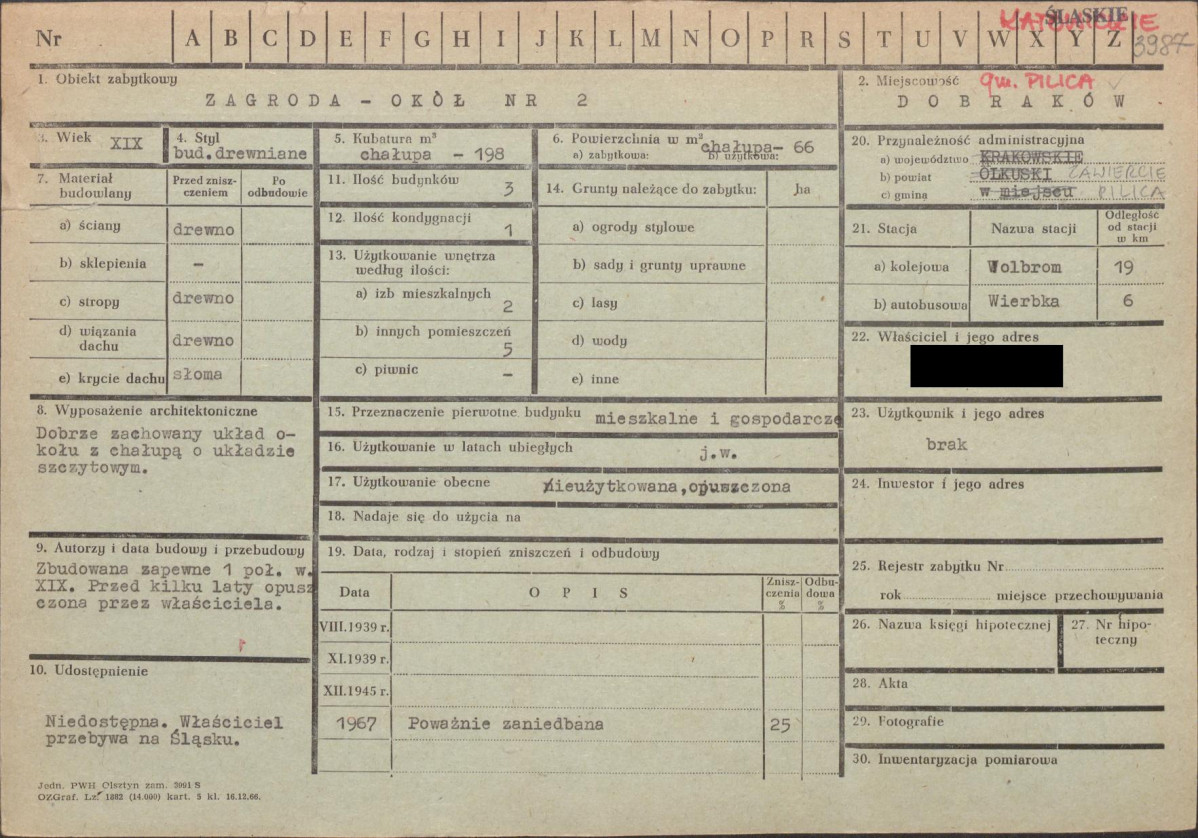 KATOWICKIE
ŚLĄSKIE
3987
Nr A B C D E F G H I J K L M N O P R S T U V W X Y Z
1. Obiekt zabytkowy
ZAGRODA - OKÓŁ NR 2
2. Miejscowość gm. PILICA
DOBRAKÓW
3. Wiek XIX
4. Styl
bud.drewniane
5. Kubatura m³
chałupa - 198
6. Powierzchnia w m²
a) zabytkowa: b) użytkowa:
chałupa- 66
7. Materiał budowlany
Przed zniszczeniem
Po odbudowie
a) ściany drewno
b) sklepienia -
c) stropy drewno
d) wiązania dachu drewno
e) krycie dachu słoma
8. Wyposażenie architektoniczne
Dobrze zachowany układ o-
kołu z chałupą o układzie
szczytowym.
9. Autorzy i data budowy i przebudowy
Zbudowana zapewne 1 poł. w.
XIX. Przed kilku laty opusz
czona przez właściciela.
10. Udostępnienie
Niedostępna. Właściciel
przebywa na Śląsku.
11. Ilość budynków 3
12. Ilość kondygnacji 1
13. Użytkowanie wnętrza
według ilości:
a) izb mieszkalnych 2
b) innych pomieszczeń 5
c) piwnic -
14. Grunty należące do zabytku: ha
a) ogrody stylowe
b) sady i grunty uprawne
c) lasy
d) wody
e) inne
15. Przeznaczenie pierwotne budynku mieszkalne i gospodarcze
16. Użytkowanie w latach ubiegłych j.w.
17. Użytkowanie obecne nieużytkowana,opuszczona
18. Nadaje się do użycia na
19. Data, rodzaj i stopień zniszczeń i odbudowy
Data OPIS Zniszczenia % Odbudowa %
VIII.1939 r.
XI.1939 r.
XII.1945 r.
1967 Poważnie zaniedbana 25
20. Przynależność administracyjna
a) województwo KRAKOWSKIE
b) powiat OLKUSKI ZAWIERCIE
c) gmina w miejscu PILICA
21. Stacja Nazwa stacji Odległość od stacji w km
a) kolejowa Wolbrom 19
b) autobusowa Wierbka 6
22. Właściciel i jego adres
23. Użytkownik i jego adres
brak
24. Inwestor i jego adres
25. Rejestr zabytku Nr
rok miejsce przechowywania
26. Nazwa księgi hipotecznej
27. Nr hipo-
teczny
28. Akta
29. Fotografie
30. Inwentaryzacja pomiarowa
Jedn. PWH Olsztyn zam. 3091 S
OZGraf. Lz. 1882 (14.000) kart. 3 kl. 16.12.66.